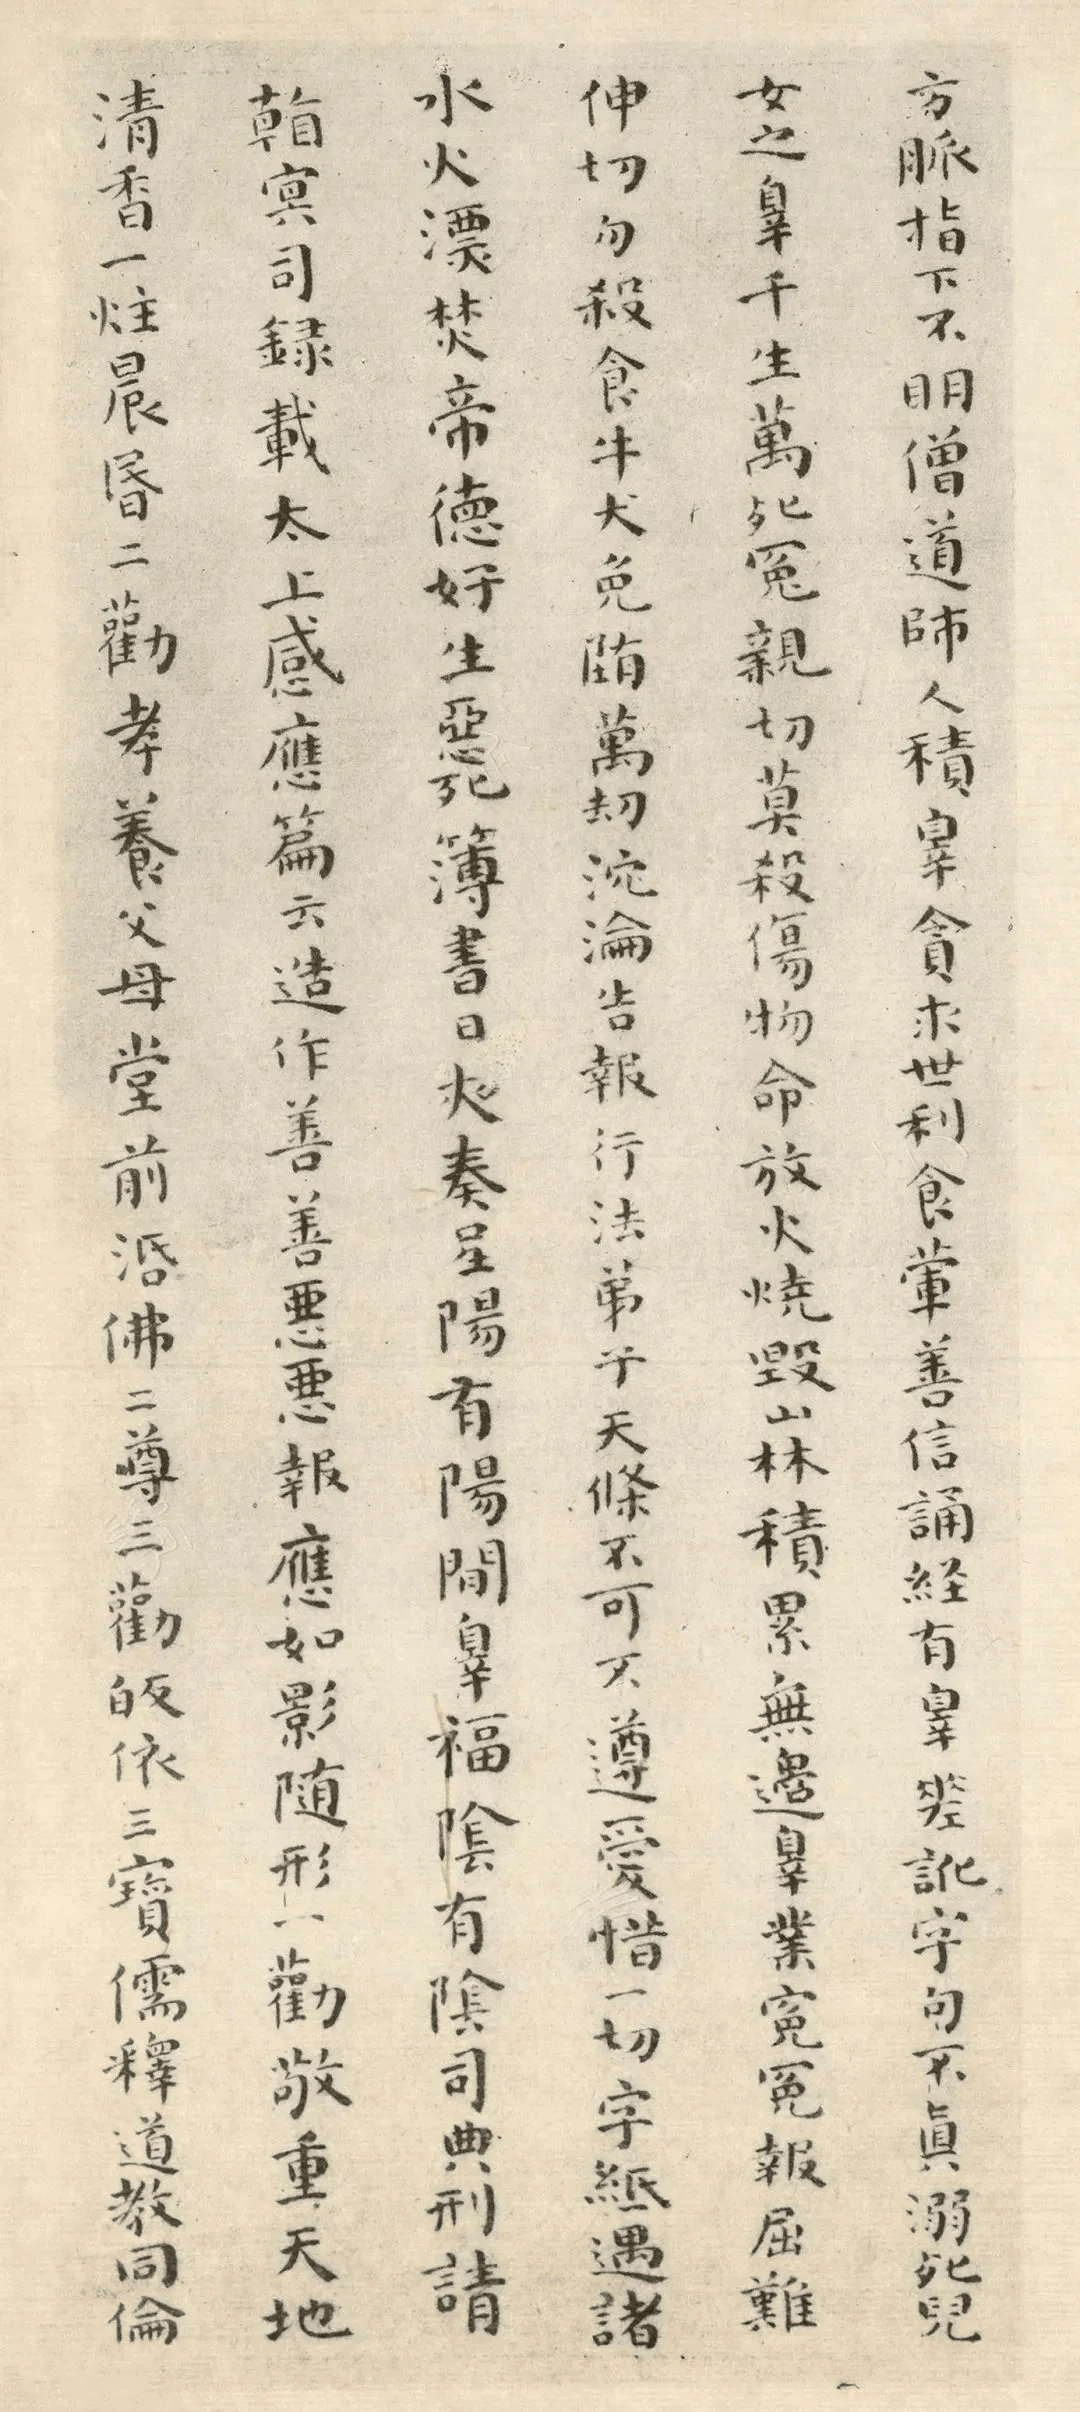 方脈指下不明僧道師人積辠貪求世利食葷善信誦経有辠差訛字句不真溺死兒
女之辠千生萬死冤親切莫殺傷物命放火燒毀山林積累無邊辠業寃冤報屈難
伸切勿殺食牛犬免陷萬劫沉淪告報行法弟子天條不可不遵愛惜一切字紙遇諸
水火漂焚帝德好生惡死簿書日夾奏星陽有陽間辠福陰有陰司典刑請
冥司録載太上感應篇云造作善善悪悪報應如影隨形一勸敬重天地
清香一炷晨昏二勸孝養父母堂前活佛二尊三勸皈依三寶儒釋道教同倫